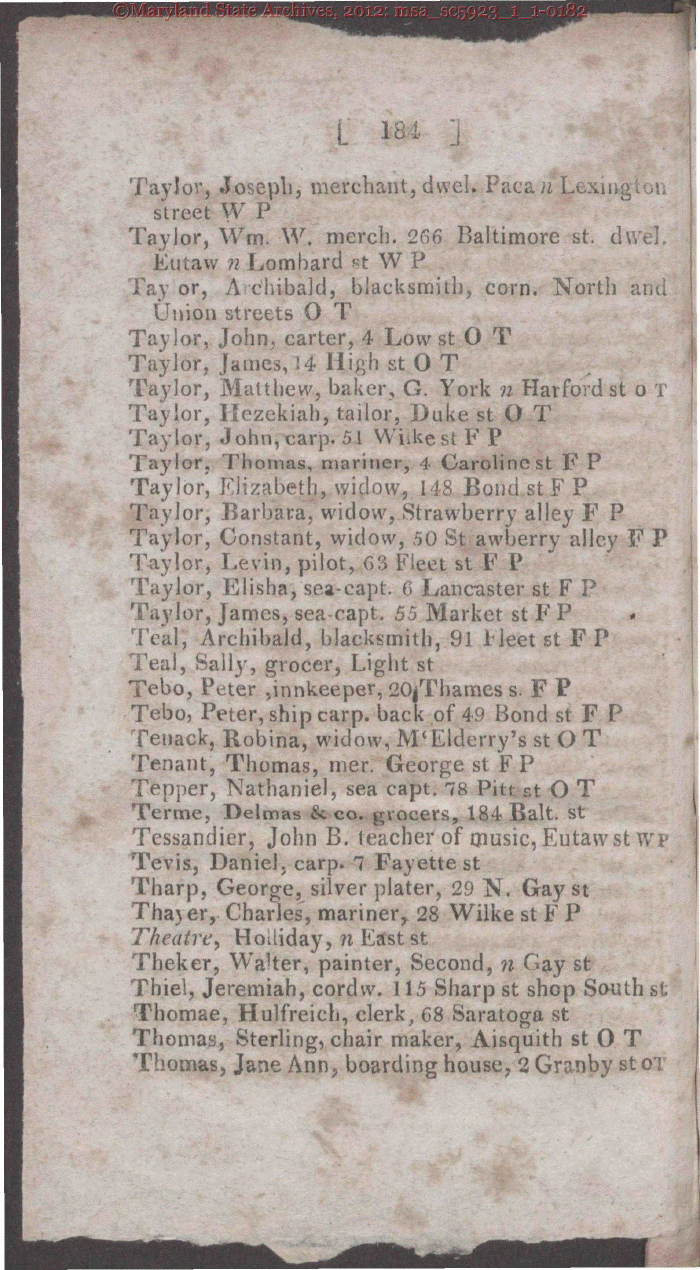 ©Maryland State Archives, 2012: msa_sc5923_1_1-0182
[ 184 ]
Taylor, Joseph, merchant, dwel. Paca n Lexington
street W P
Taylor, Wm. W. merch. 266 Baltimore st. dwel.
Eutaw n Lombard st W P
Tay or, Archibald, blacksmith, corn. North and
Union streets O T
Taylor, John, carter, 4 Low st O T
Taylor, James, 14 High st O T
Taylor, Matthew, baker, G. York n Harford st O T
Taylor, Hezekiah, tailor, Duke st O T
Taylor, John, carp. 51 Wilke st F P
Taylor, Thomas, mariner, 4 Caroline st F P
Taylor, Elizabeth, widow, 148 Bond st F P
Taylor, Barbara, widow, Strawberry alley F P
Taylor, Constant, widow, 50 St awberry alley F P
Taylor, Levin, pilot, 63 Fleet st F P
Taylor, Elisha, sea-capt. 6 Lancaster st F P
Taylor, James, sea-capt. 55 Market st F P
Teal, Archibald, blacksmith, 91 Fleet st F P
Teal, Sally, grocer, Light st
Tebo, Peter ,innkeeper, 20 Thames s. F P
Tebo, Peter, ship carp. back of 49 Bond st F P
Tenack, Robina, widow, M'Elderry's st O T
Tenant, Thomas, mer. George st F P
Tepper, Nathaniel, sea capt. 78 Pitt st O T
Terme, Delmas & co. grocers, 184 Balt. st
Tessandier, John B. teacher of music, Eutaw st W P
Tevis, Daniel, carp. 7 Fayette st
Tharp, George, silver plater, 29 N. Gay st
Thayer, Charles, mariner, 28 Wilke st F P
Theatre, Holliday, n East st
Theker, Walter, painter, Second, n Gay st
Thiel, Jeremiah, cordw. 115 Sharp st shop South st
Thomae, Hulfreich, clerk, 68 Saratoga st
Thomas, Sterling, chair maker, Aisquith st O T
Thomas, Jane Ann, boarding house, 2 Granby st O T